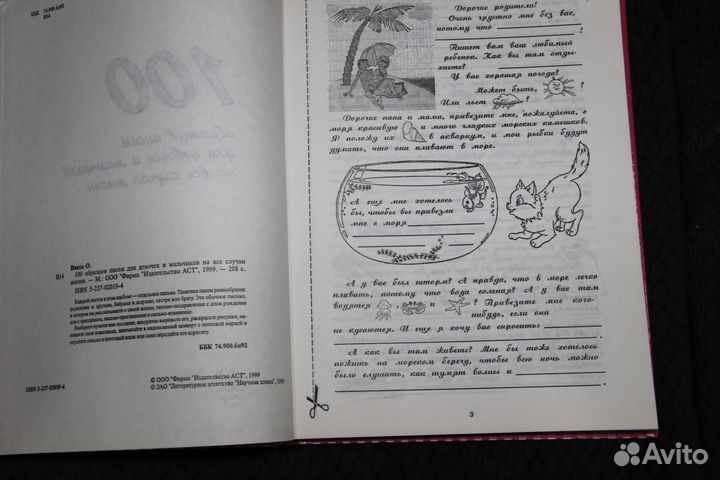 ББК 74.900.6я92
В14
100
образцов писем
для девочек и мальчиков
на все случаи жизни
Вакса О.
В14 100 образцов писем для девочек и мальчиков на все случаи
жизни. — М.: ООО "Фирма "Издательство АСТ", 1999. — 208 с.
ISBN 5-237-02019-4
Каждый листок в этом альбоме — отдельное письмо. Тематика писем разнообразна:
родителям и друзьям, бабушке и дедушке, сестре или брату. Это обычное письмо,
в котором вы рассказываете о своей жизни, письмо-поздравление с днем рождения
или с праздником, письмо-приглашение и письмо-извинение.
ББК 74.900.6я92
ISBN 5-237-02019-4
© ООО "Фирма "Издательство АСТ", 1999
© ЗАО "Литературное агентство "Научная книга", 1999
Дорогие родители!
Очень грустно мне без вас,
потому что
Пишет вам ваш любимый
ребенок. Как вы там отды-
хаете?
У вас хорошая погода?
Может быть,
Или льет ?
Дорогие папа и мама, привезите мне, пожалуйста, с
моря красивую и много гладких морских камешков.
Я положу их в аквариум, и мои рыбки будут
думать, что они плавают в море.
А еще мне хотелось
бы, чтобы вы привезли
мне с моря
А у вас был шторм? А правда, что в море легко
плавать, потому что вода соленая? А у вас там
водятся и ? Привезите мне кого-
нибудь, если они
не кусаются. И еще я хочу вас спросить:
А как вы там живете? Мне бы тоже хотелось
пожить на морском берегу, чтобы всю ночь можно
было слушать, как шумят волны и
3
Avito